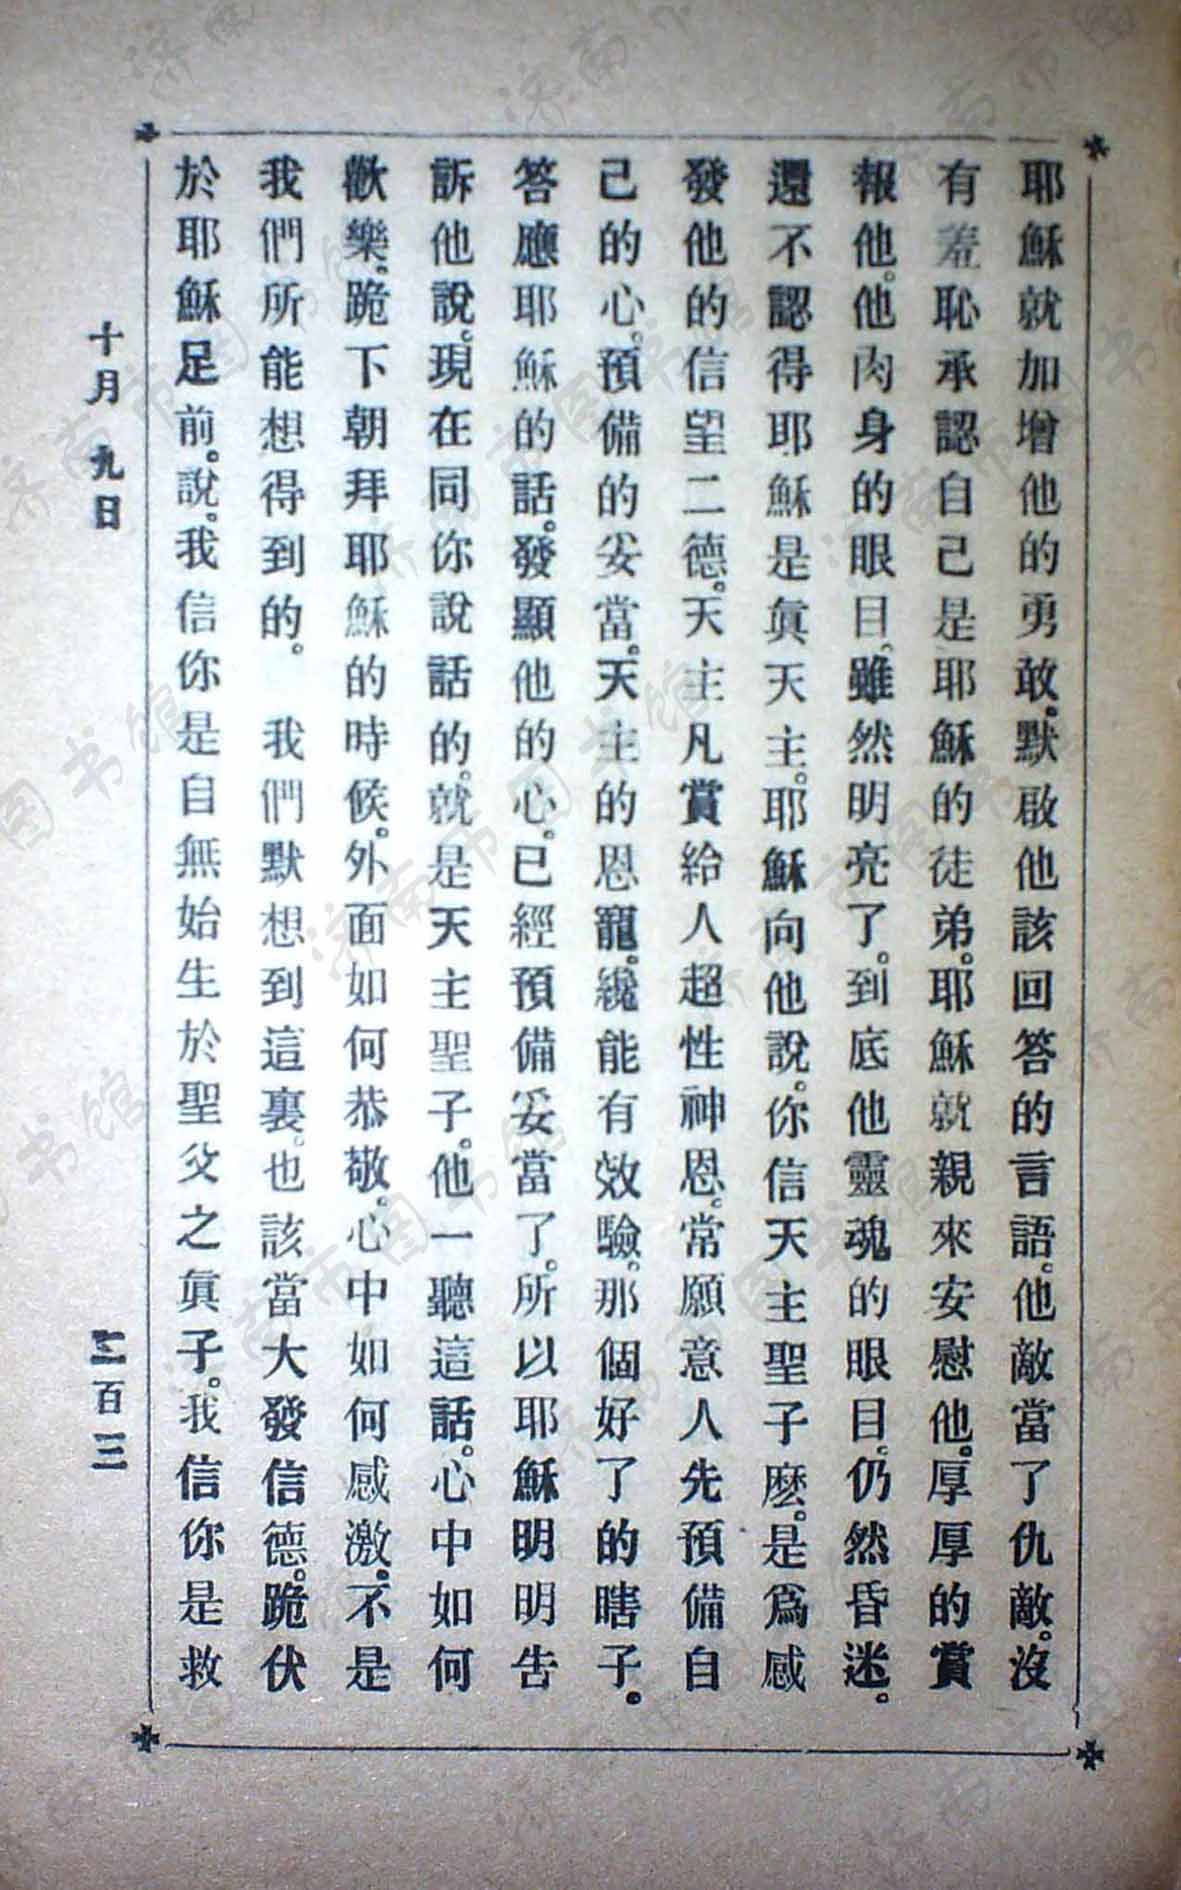 耶穌就加增他的勇敢。默啟他該回答的言語。他敵當了仇敵。沒
有羞恥承認自己是耶穌的徒弟。耶穌就親來安慰他。厚厚的賞
報他。他肉身的眼目。雖然明亮了。到底他靈魂的眼目。仍然昏迷。
還不認得耶穌是眞天主。耶穌向他說。你信天主聖子麽。是爲感
發他的信望二德。天主凡賞給人超性神恩。常願意人先預備自
己的心。預備的妥當。天主的恩寵。纔能有效驗。那個好了的瞎子。
答應耶穌的話。發顯他的心。已經預備妥當了。所以耶穌明明告
訴他說。現在同你說話的。就是天主聖子。他一聽這話。心中如何
歡樂。跪下朝拜耶穌的時候。外面如何恭敬。心中如何感激。不是
我們所能想得到的。　我們默想到這裏。也該當大發信德。跪伏
於耶穌足前。說。我信你是自無始生於聖父之眞子。我信你是救
十月 九日
二百三
济南市图书馆